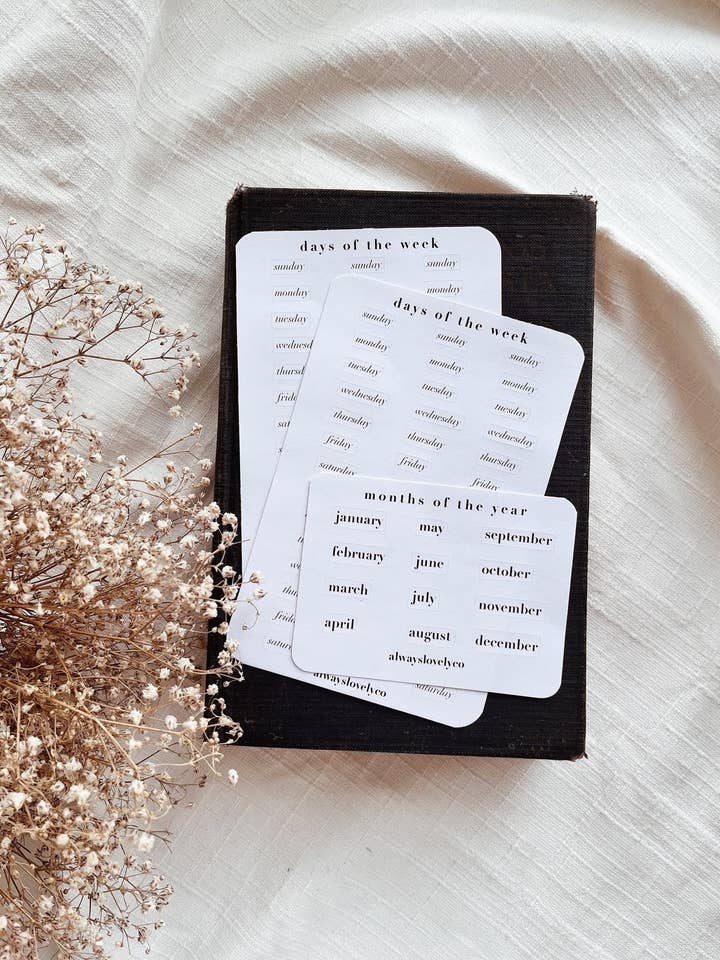 days of the week
sunday sunday sunday
monday monday
tuesday
wednesd
thursd
frid
sat
days of the week
sunday sunday sunday
monday monday monday
tuesday tuesday tuesday
wednesday wednesday wednesday
thursday thursday thursday
friday friday friday
saturday
thu
frida
satur saturday
alwayslovelyco
months of the year
january may september
february june october
march july november
april august december
alwayslovelyco